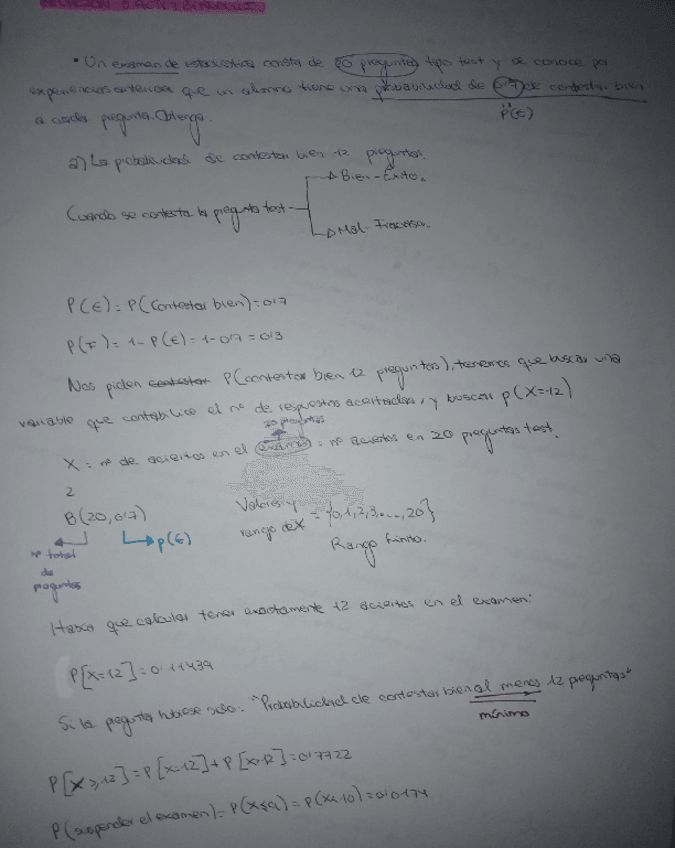 • Un examen de estadística consta de 20 preguntas tipo test y se conoce por
experiencias anteriores que un alumno tiene una probabilidad de 0'7 de contestar bien
a cada pregunta. Obtenga.
P(E)
a) La probabilidad de contestar bien 12 preguntas.
Bien - Éxito.
Cuando se contesta la pregunta test
Mal - Fracaso.
P(E) = P(Contestar bien) = 0'7
P(F) = 1 - P(E) = 1 - 0'7 = 0'3
Nos piden contestar P(contestar bien 12 preguntas), tenemos que buscar una
variable que contabilice el nº de respuestas acertadas, y buscar p(X=12)
20 preguntas
X = nº de aciertos en el examen = nº aciertos en 20 preguntas test.
2
B(20, 0'7)
Valores y
rango de X = {0,1,2,3,...,20}
p(E)
Rango finito.
nº total
de
preguntas
que calcular tener exactamente 12 aciertos en el examen:
P[X=12] = 0'11439
Si la pregunta hubiese sido: "Probabilidad de contestar bien al menos 12 preguntas"
mínimo
P[X≥12] = P[X=12] + P[X>12] = 0'7722
P(suspender el examen) = P(X≤9) = P(X<10) = 0'0174